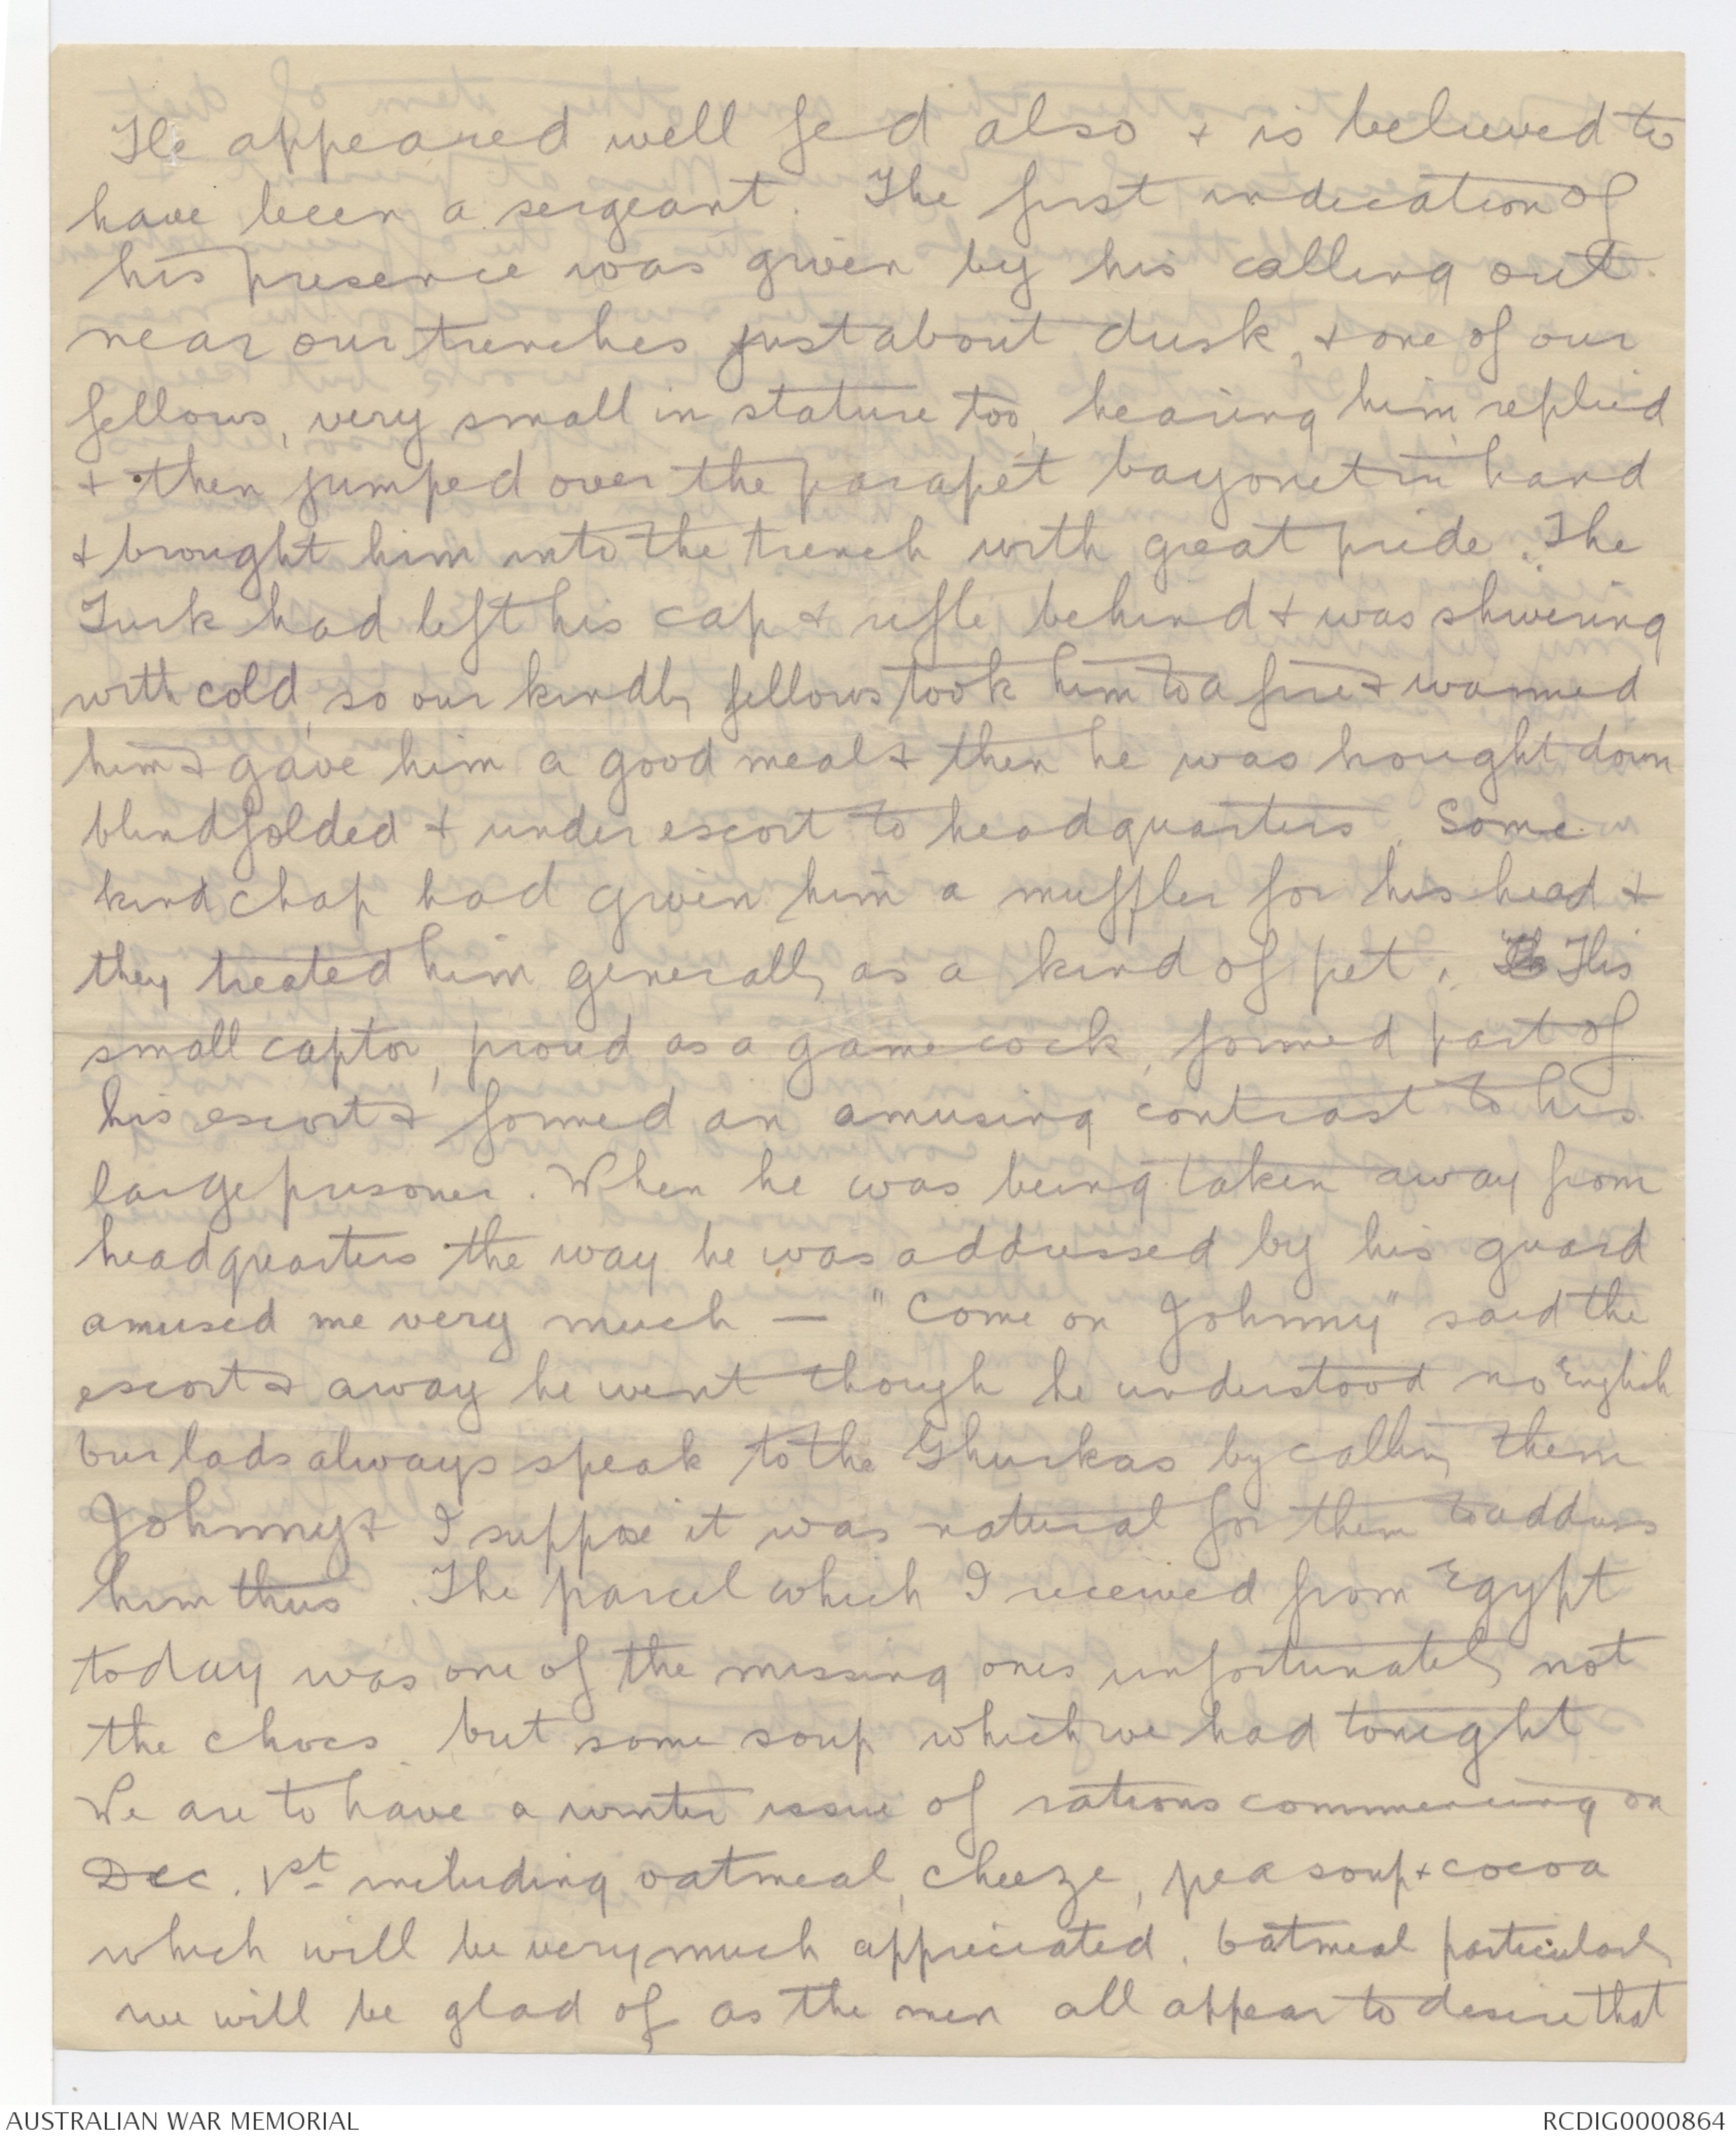 He appeared well fed also & is believed to
have been a sergeant. The first indication of
his presence was given by his calling out
near our trenches just about dusk, & one of our
fellows, very small in stature too, hearing him replied
& then jumped over the parapet bayonet in hand
& brought him into the trench with great pride. The
Turk had left his cap & rifle behind & was shivering
with cold, so our kindly fellows took him to a fire & warmed
him & gave him a good meal & then he was brought down
blindfolded & under escort to headquarters. Some
kind chap had given him a muffler for his head &
they treated him generally as a kind of pet. His
small captor, proud as a game cock, formed part of
his escort & formed an amusing contrast to his
large prisoner. When he was being taken away from
headquarters the way he was addressed by his guard
amused me very much — "Come on Johnny" said the
escort & away he went though he understood no English
Our lads always speak to the Ghurkas by calling them
Johnny & I suppose it was natural for them to address
him thus. The parcel which I received from Egypt
today was one of the missing ones unfortunately not
the chocs. but some soup which we had tonight
We are to have a winter issue of rations commencing on
Dec. 1st including oatmeal, cheeze, pea soup & cocoa
which will be very much appreciated. Oatmeal particularly
we will be glad of as the men all appear to desire that
AUSTRALIAN WAR MEMORIAL
RCDIG0000864